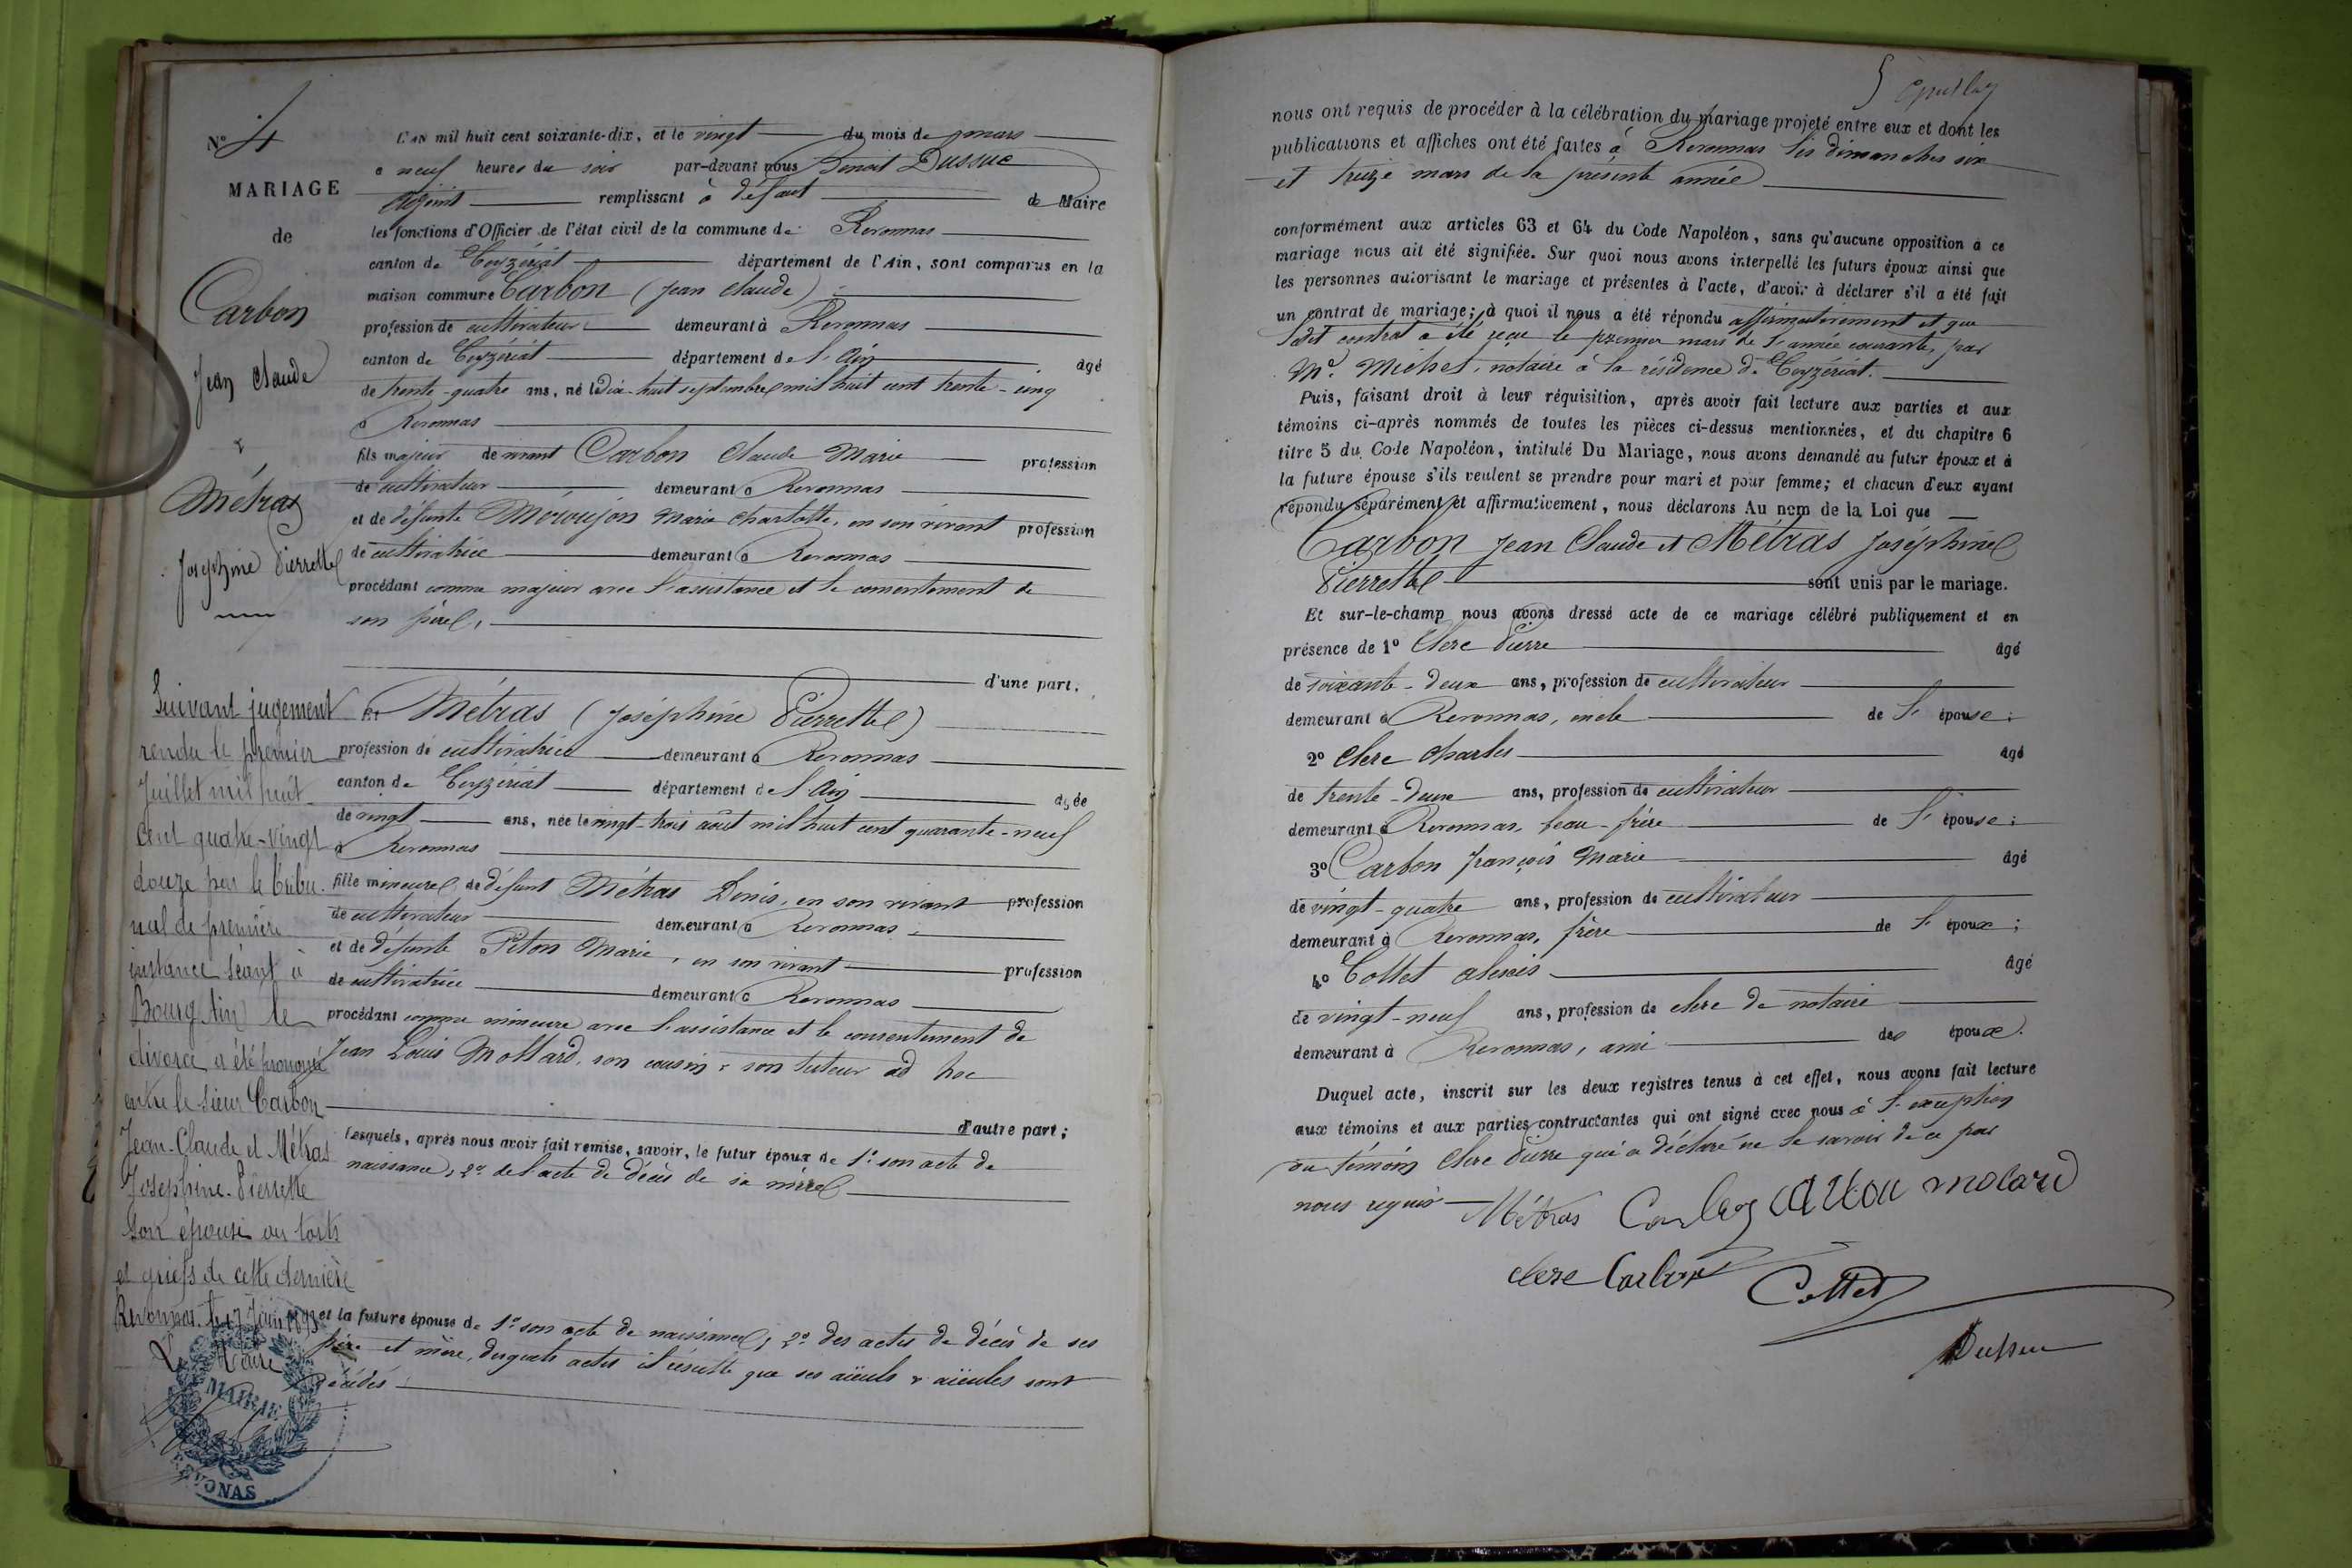 N° 4
MARIAGE
de
Carbon
Jean Claude
&
Métras
Joséphine Pierrette
Suivant jugement
rendu le premier
Juillet mil huit
cent quatre-vingt
douze par le tribu-
nal de première
instance séant à
Bourg (Ain) le
divorce a été prononcé
entre le sieur Carbon
Jean-Claude et Métras
Joséphine-Pierrette
son épouse au torts
et griefs de cette dernière
Revonnas, le 17 Juin 1893
Le Maire
MAIRIE
REVONAS
L'AN mil huit cent soixante-dix, et le vingt du mois de mars
à neuf heures du soir par-devant nous Benoit Dussuc
adjoint remplissant à défaut de Maire
les fonctions d'Officier de l'état civil de la commune de Revonnas
canton de Ceyzériat département de l'Ain, sont comparus en la
maison commune Carbon (Jean Claude)
profession de cultivateur demeurant à Revonnas
canton de Ceyzériat département de l'Ain âgé
de trente-quatre ans, né le dix-huit septembre mil huit cent trente-cinq
à Revonnas
fils majeur de vivant Carbon Claude Marie profession
de cultivateur demeurant à Revonnas
et de défunte Marie Charlotte, en son vivant profession
de cultivatrice demeurant à Revonnas
procédant comme majeur avec l'assistance et le consentement de
son père,
d'une part.
Et Métras (Joséphine Pierrette)
profession de cultivatrice demeurant à Revonnas
canton de Ceyzériat département de l'Ain âgée
de vingt ans, née le vingt-trois août mil huit cent quarante-neuf
à Revonnas
fille mineure de défunt Métras Denis, en son vivant profession
de cultivateur demeurant à Revonnas
et de défunte Piton Marie, en son vivant profession
de cultivatrice demeurant à Revonnas
procédant comme mineure avec l'assistance et le consentement de
Jean Louis Mollard, son cousin & son tuteur ad hoc
d'autre part;
Lesquels, après nous avoir fait remise, savoir, le futur époux de 1° son acte de
naissance, 2° de l'acte de décès de sa mère
et la future épouse de 1° son acte de naissance, 2° des actes de décès de ses
père et mère, desquels actes il résulte que ses aïeuls & aïeules sont
décédés
5
nous ont requis de procéder à la célébration du mariage projeté entre eux et dont les
publications et affiches ont été faites à Revonnas les dimanches six
et treize mars de la présente année
conformément aux articles 63 et 64 du Code Napoléon, sans qu'aucune opposition à ce
mariage nous ait été signifiée. Sur quoi nous avons interpellé les futurs époux ainsi que
les personnes autorisant le mariage et présentes à l'acte, d'avoir à déclarer s'il a été fait
un contrat de mariage; à quoi il nous a été répondu affirmativement et que
ledit contrat a été reçu le premier mars de l'année courante, par
Me. Michel, notaire à la résidence de Ceyzériat.
Puis, faisant droit à leur réquisition, après avoir fait lecture aux parties et aux
témoins ci-après nommés de toutes les pièces ci-dessus mentionnées, et du chapitre 6
titre 5 du Code Napoléon, intitulé Du Mariage, nous avons demandé au futur époux et à
la future épouse s'ils veulent se prendre pour mari et pour femme; et chacun d'eux ayant
répondu séparément et affirmativement, nous déclarons Au nom de la Loi que
Carbon Jean Claude et Métras Joséphine
Pierrette sont unis par le mariage.
Et sur-le-champ nous avons dressé acte de ce mariage célébré publiquement et en
présence de 1° Clerc Pierre âgé
de soixante-deux ans, profession de cultivateur
demeurant à Revonnas, oncle de l'épouse;
2° Clerc Charles âgé
de trente-deux ans, profession de cultivateur
demeurant à Revonnas, beau-frère de l'épouse;
3° Carbon François Marie âgé
de vingt-quatre ans, profession de cultivateur
demeurant à Revonnas, frère de l'époux;
4° Collet Alexis âgé
de vingt-neuf ans, profession de clerc de notaire
demeurant à Revonnas, ami des époux.
Duquel acte, inscrit sur les deux registres tenus à cet effet, nous avons fait lecture
aux témoins et aux parties contractantes qui ont signé avec nous à l'exception
du témoin Clerc Pierre qui a déclaré ne le savoir de ce par
nous requis
Métras Carbon Carbon molard
clerc Carbon Collet
Dussuc